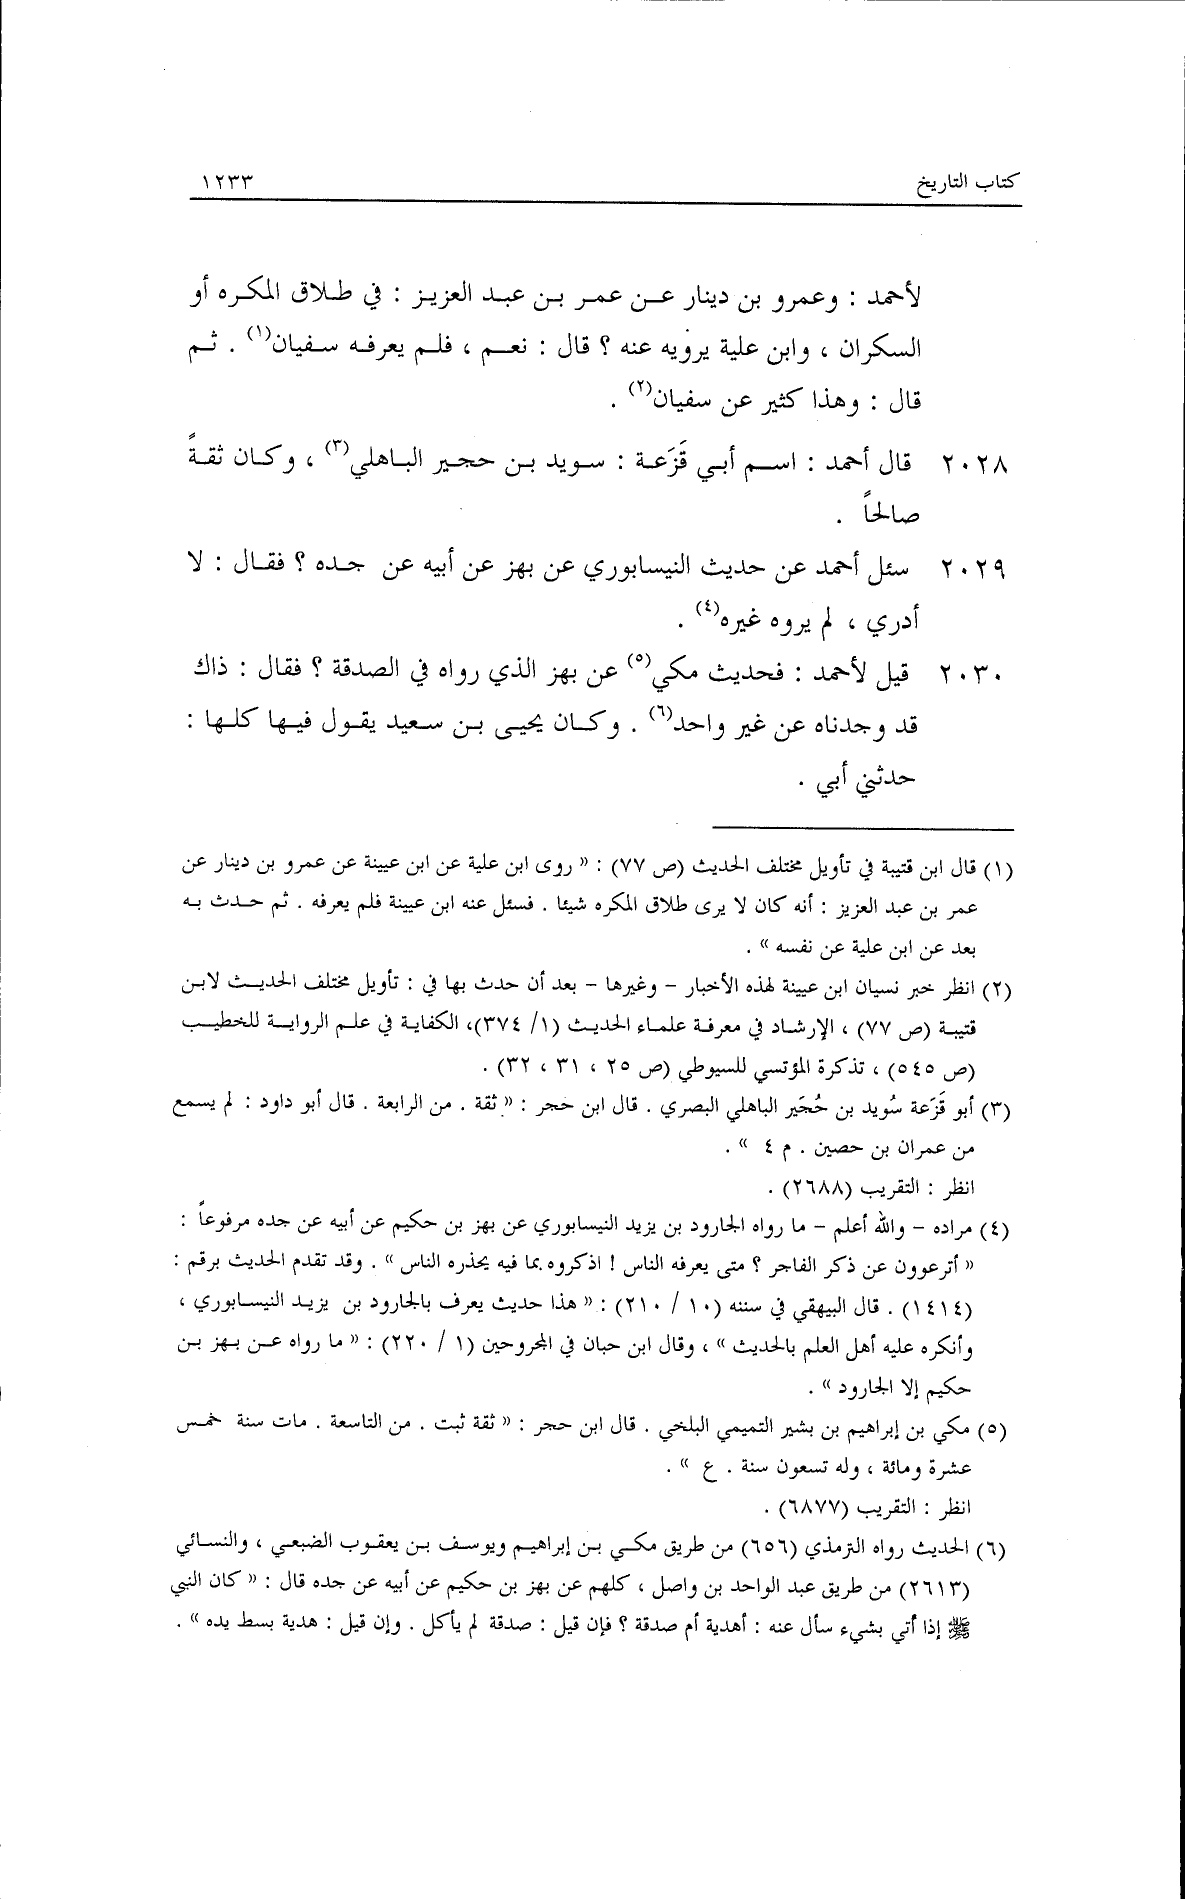 كتاب التاريخ ١٢٣٣
لأحمد : وعمرو بن دينار عن عمر بن عبد العزيز : في طلاق المكره أو
السكران ، وابن علية يرويه عنه ؟ قال : نعم ، فلم يعرفه سفيان(١) . ثم
قال : وهذا كثير عن سفيان(٢) .
٢٠٢٨ قال أحمد : اسم أبي قَزَعة : سويد بن حجير الباهلي(٣) ، وكان ثقةً
صالحاً .
٢٠٢٩ سئل أحمد عن حديث النيسابوري عن بهز عن أبيه عن جده ؟ فقال : لا
أدري ، لم يروه غيره(٤) .
٢٠٣٠ قيل لأحمد : فحديث مكي(٥) عن بهز الذي رواه في الصدقة ؟ فقال : ذاك
قد وجدناه عن غير واحد(٦) . وكان يحيى بن سعيد يقول فيها كلها :
حدثني أبي .
(١) قال ابن قتيبة في تأويل مختلف الحديث (ص ٧٧) : « روى ابن علية عن ابن عيينة عن عمرو بن دينار عن
عمر بن عبد العزيز : أنه كان لا يرى طلاق المكره شيئا . فسئل عنه ابن عيينة فلم يعرفه . ثم حدث به
بعد عن ابن علية عن نفسه » .
(٢) انظر خبر نسيان ابن عيينة لهذه الأخبار - وغيرها - بعد أن حدث بها في : تأويل مختلف الحديث لابن
قتيبة (ص ٧٧) ، الإرشاد في معرفة علماء الحديث (١/ ٣٧٤)، الكفاية في علم الرواية للخطيب
(ص ٥٤٥) ، تذكرة المؤتسي للسيوطي (ص ٢٥ ، ٣١ ، ٣٢) .
(٣) أبو قَزَعة سُويد بن حُجَير الباهلي البصري . قال ابن حجر : « ثقة . من الرابعة . قال أبو داود : لم يسمع
من عمران بن حصين . م ٤ » .
انظر : التقريب (٢٦٨٨) .
(٤) مراده - والله أعلم - ما رواه الجارود بن يزيد النيسابوري عن بهز بن حكيم عن أبيه عن جده مرفوعاً :
« أترعوون عن ذكر الفاجر ؟ متى يعرفه الناس ! اذكروه بما فيه يحذره الناس » . وقد تقدم الحديث برقم :
(١٤١٤) . قال البيهقي في سننه (١٠ / ٢١٠) : « هذا حديث يعرف بالجارود بن يزيد النيسابوري ،
وأنكره عليه أهل العلم بالحديث » ، وقال ابن حبان في المجروحين (١ / ٢٢٠) : « ما رواه عن بهز بن
حكيم إلا الجارود » .
(٥) مكي بن إبراهيم بن بشير التميمي البلخي . قال ابن حجر : « ثقة ثبت . من التاسعة . مات سنة خمس
عشرة ومائة ، وله تسعون سنة . ع » .
انظر : التقريب (٦٨٧٧) .
(٦) الحديث رواه الترمذي (٦٥٦) من طريق مكي بن إبراهيم ويوسف بن يعقوب الضبعي ، والنسائي
(٢٦١٣) من طريق عبد الواحد بن واصل ، كلهم عن بهز بن حكيم عن أبيه عن جده قال : « كان النبي
ﷺ إذا أُتي بشيء سأل عنه : أهدية أم صدقة ؟ فإن قيل : صدقة لم يأكل . وإن قيل : هدية بسط يده » .